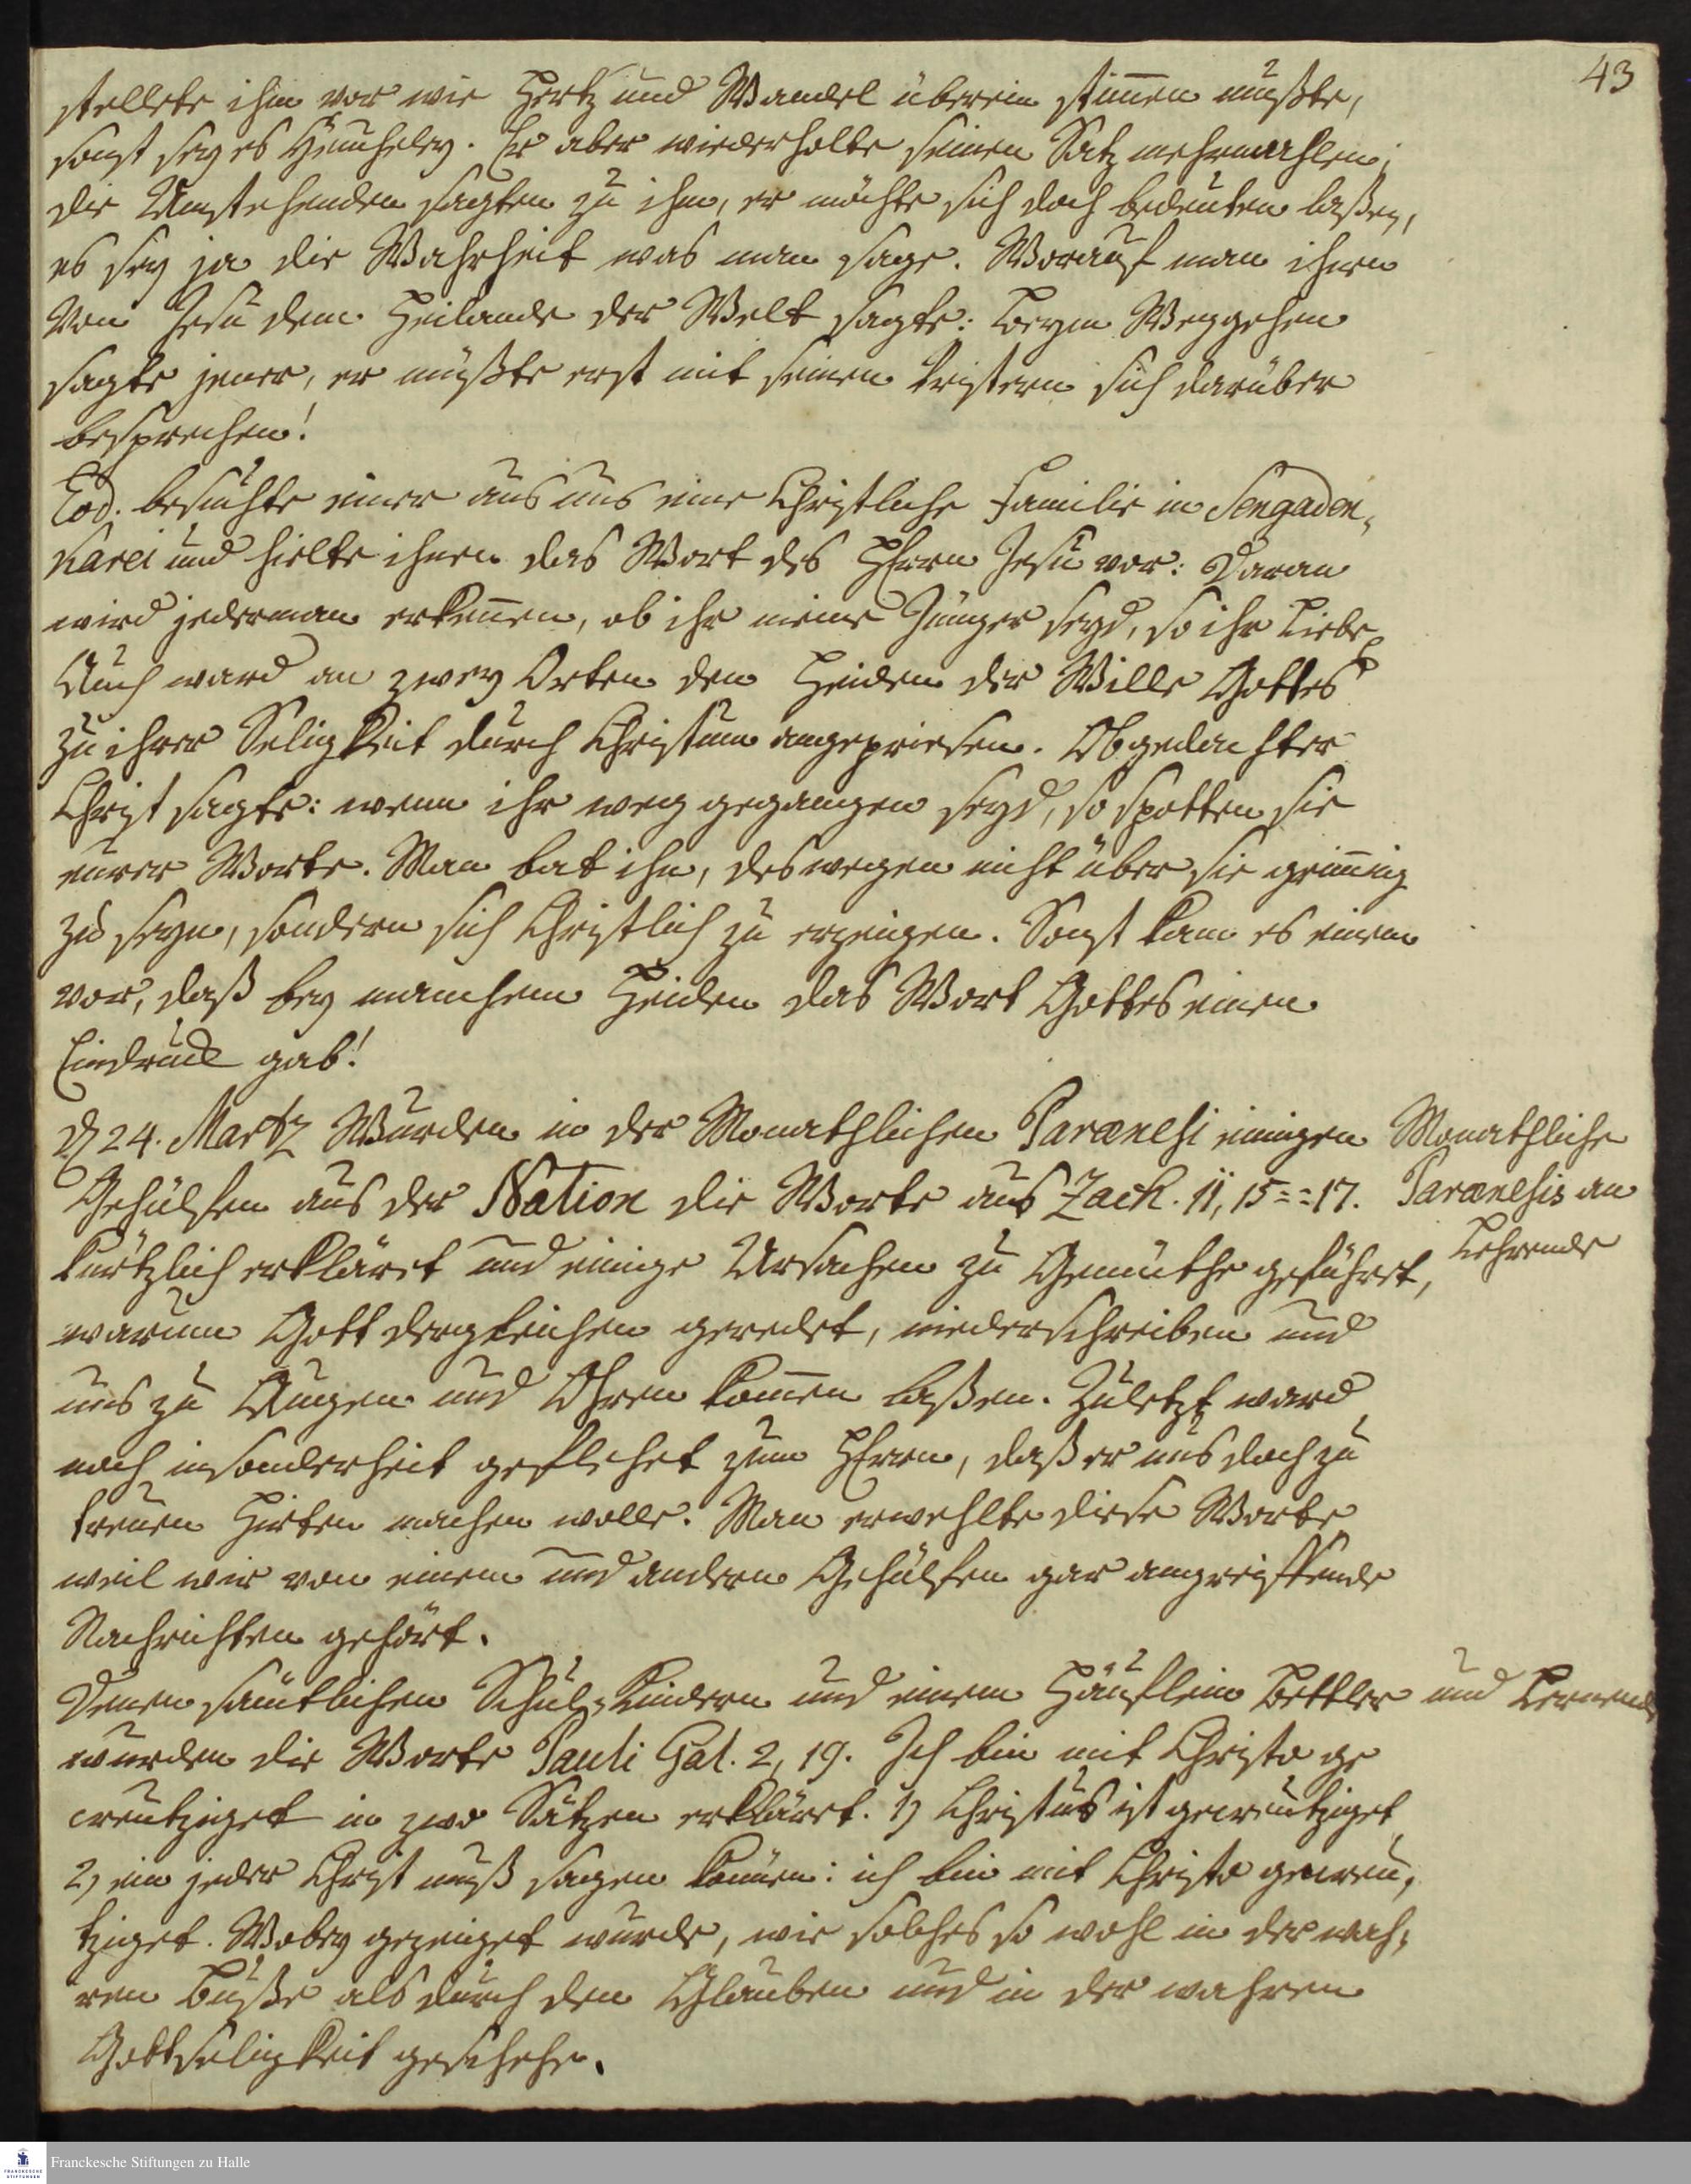 43
stellete ihm vor wie Hertz und Wandel überein stim̅en müßte,
sonst sey es Heucheley. Er aber wiederholte seinen Satz mehrmahlen;
die Umstehenden sagten zu ihm, er möchte sich doch bedeuten laßen,
es sey ja die Wahrheit was man sage. Worauf man ihnen
von Jesu dem Heilande der Welt sagte: Beym Weggehen
sagte jener, er müßte erst mit seinen Pristern sich darüber
besprechen!
Eod. besuchte einer aus uns eine Christliche Familie in Sengaden-
karei und hielte ihnen das Wort des HErrn Jesu vor: Daran
wird jederman erken̅en, ob ihr meine Jünger seyd, so ihr Liebe
Auch ward an zwey Orten den Heiden der Wille Gottes
zu ihrer Seligkeit durch Christum angepriesen. Obgedachter
Christ sagte: wenn ihr weg gegangen seyd, so spotten sie
eurer Worte. Man bat ihn, deswegen nicht über sie grim̅ig
zu seyn, sondern sich Christlich zu erzeigen. Sonst kam es einem
vor, daß bey manchem Heiden das Wort Gottes einen
Eindruck gab!
D 24. Martz Wurden in der Monathlichen Parænesi einigen
Gehülfen aus der Nation die Worte aus Zach. 11, 15 = = 17.
kürtzlich erkläret und einige Ursachen zu Gemüthe geführet,
Monathliche
Parænesis an
Lehrende
warum Gott dergleichen geredet, niederschreiben und
uns zu Augen und Ohren kom̅en laßen. Zuletzt ward
noch insonderheit geflehet zum HErrn, daß er uns doch zu
treuen Hirten machen wolle. Man erwehlte diese Worte
weil wir von einem und andern Gehülfen gar angreiffende
Nachrichten gehört.
Denen sämtlichen Schul-Kindern und einem Häuflein Bettler
und Lernende
wurden die Worte Pauli Gal. 2, 19. Ich bin mit Christo ge
creutziget in zwo Sätzen erkläret. 1) Christus ist gecreutziget
2) ein jeder Christ muß sagen kön̅en: ich bin mit Christo gecreu-
tziget. Wobey gezeiget wurde, wie solches so wohl in der wah-
ren Buße als durch den Glauben und in der wahren
Gottseligkeit geschehe.
Franckesche Stiftungen zu Halle